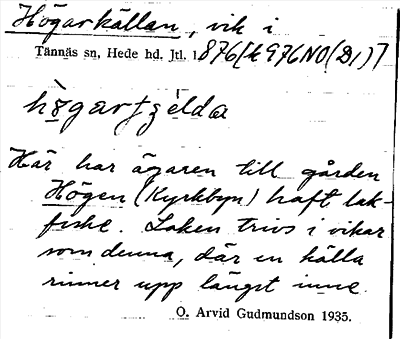 Högarkällan, vik i
Tännäs sn, Hede hd. Jtl. 1876[k976NO(D1)]
Här har ägaren till gården
Högen (Kyrkbyn) haft lak-
fiske. Laken trivs i vikar
som denna, där en källa
rinner upp längst inne.
O. Arvid Gudmundson 1935.